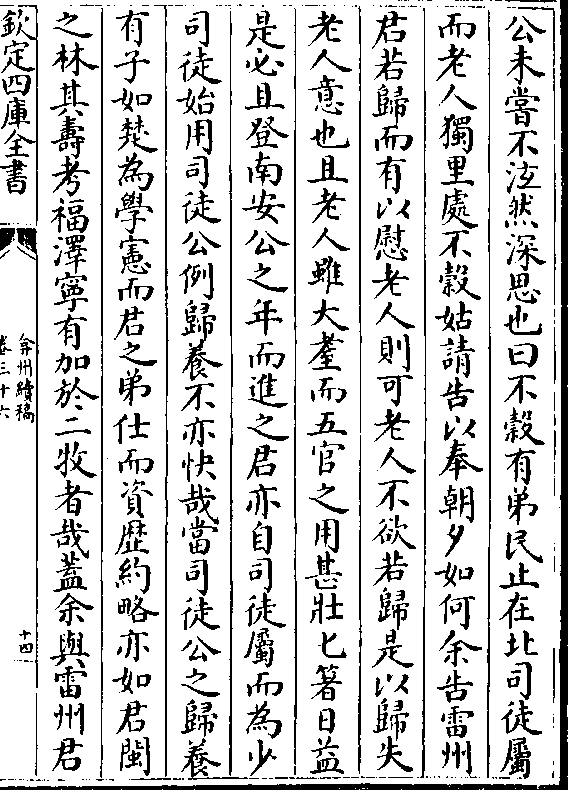 公未嘗不泫然深思也曰不穀有弟民止在北司徒屬
而老人獨里處不穀姑請告以奉朝夕如何余告雷州
君若歸而有以慰老人則可老人不欲若歸是以歸失
老人意也且老人雖大耋而五官之用甚壯匕箸日益
是必且登南安公之年而進之君亦自司徒屬而為少
司徒始用司徒公例歸養不亦快哉當司徒公之歸養
有子如楚為學憲而君之弟仕而資歴約略亦如君閩
之林其壽考福澤寧有加於二牧者哉蓋余與雷州君
欽定四庫全書
弇州續稿
卷三十六
十四